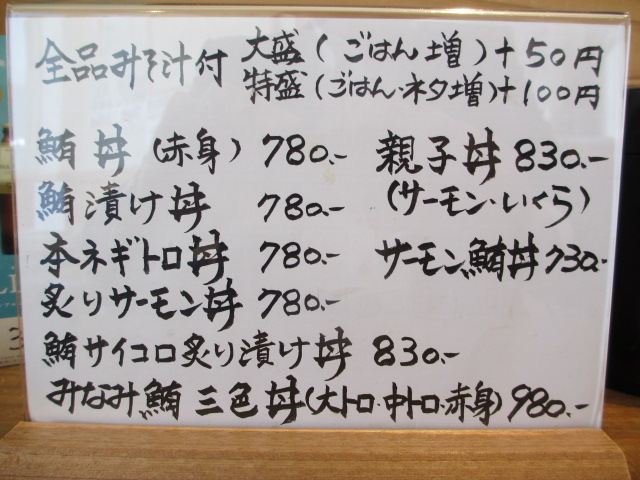 全品みそ汁付
大盛(ごはん増)+50円
特盛(ごはん・ネタ増)+100円
鮪丼(赤身) 780.-
鮪漬け丼 780.-
本ネギトロ丼 780.-
炙りサーモン丼 780.-
親子丼 830.-
(サーモン・いくら)
サーモン鮪丼 730.-
鮪サイコロ炙り漬け丼 830.-
みなみ鮪三色丼(大トロ・中トロ・赤身) 980.-